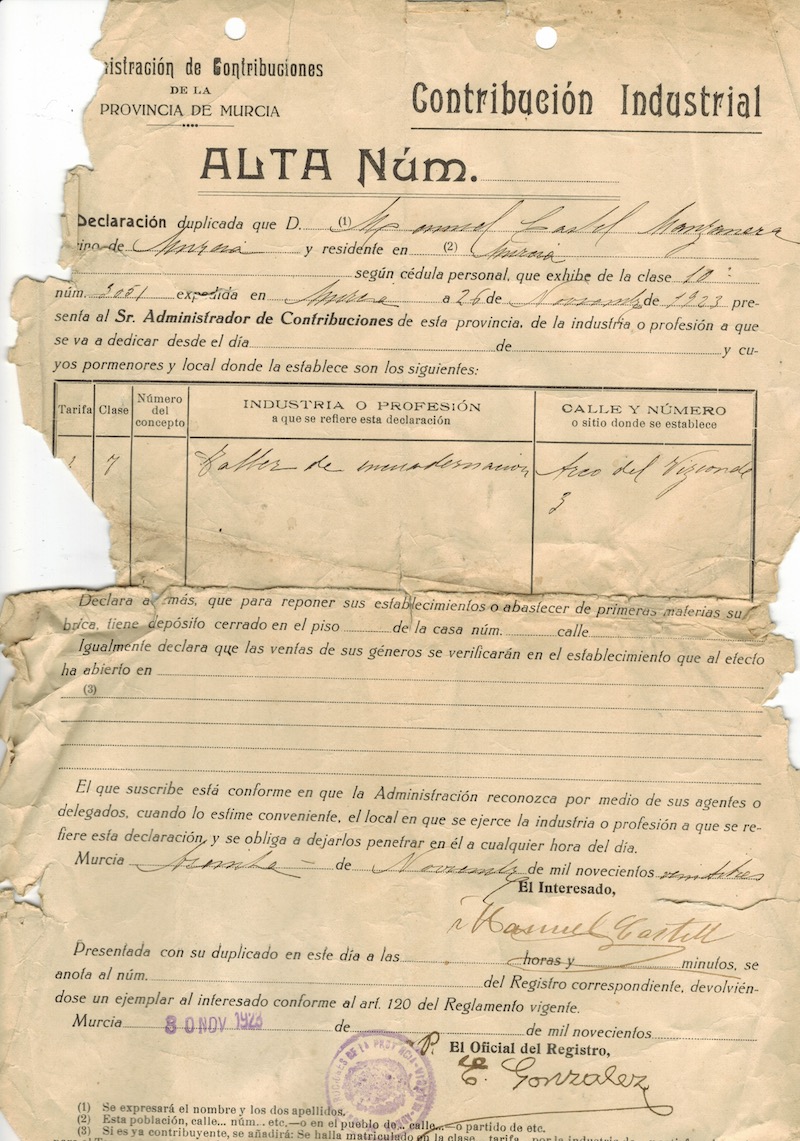 nistración de Contribuciones
DE LA
PROVINCIA DE MURCIA
Contribución Industrial
ALTA Núm.
Declaración duplicada que D. (1) Manuel Castel Manzanera
cino de Murcia y residente en (2) Murcia
según cédula personal, que exhibe de la clase 10ª
núm. 3051 expedida en Murcia a 26 de Noviembre de 1923 pre-
senta al Sr. Administrador de Contribuciones de esta provincia, de la industria o profesión a que
se va a dedicar desde el día de y cu-
yos pormenores y local donde la establece son los siguientes:
Tarifa Clase Número del concepto INDUSTRIA O PROFESIÓN a que se refiere esta declaración CALLE Y NÚMERO o sitio donde se establece
7 Taller de encuadernacion Arco del Vizconde
3
Declara a más, que para reponer sus establecimientos o abastecer de primeras materias su
brica, tiene depósito cerrado en el piso de la casa núm. calle
Igualmente declara que las ventas de sus géneros se verificarán en el establecimiento que al efecto
ha abierto en
(3)
El que suscribe está conforme en que la Administración reconozca por medio de sus agentes o
delegados, cuando lo estime conveniente, el local en que se ejerce la industria o profesión a que se re-
fiere esta declaración, y se obliga a dejarlos penetrar en él a cualquier hora del día.
Murcia treinta de Noviembre de mil novecientos veintitres
El Interesado,
Manuel Castell
Presentada con su duplicado en este día a las horas y minutos, se
anota al núm. del Registro correspondiente, devolvién-
dose un ejemplar al interesado conforme al art. 120 del Reglamento vigente.
Murcia 30 NOV 1923 de de mil novecientos
P. El Oficial del Registro,
E. Gonzalez
(1) Se expresará el nombre y los dos apellidos.
(2) Esta población, calle... núm.. etc.—o en el pueblo de.. calle...—o partido de etc.
(3) Si es ya contribuyente, se añadirá: Se halla matriculado en la clase... tarifa.. por la industria